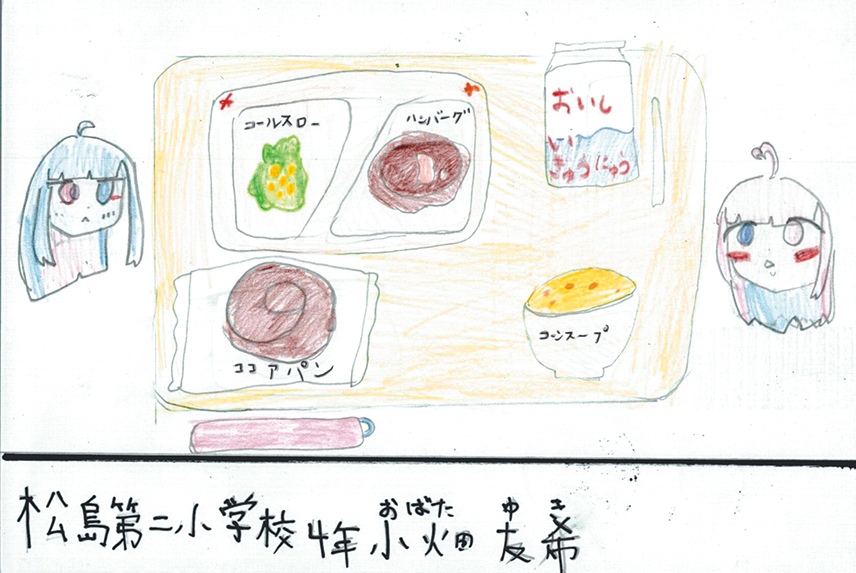 コールスロー
ハンバーグ
おいし
い
ぎゅうにゅう
ココアパン
コーンスープ
おばた ゆき
松島第二小学校 4年 小畑 友希